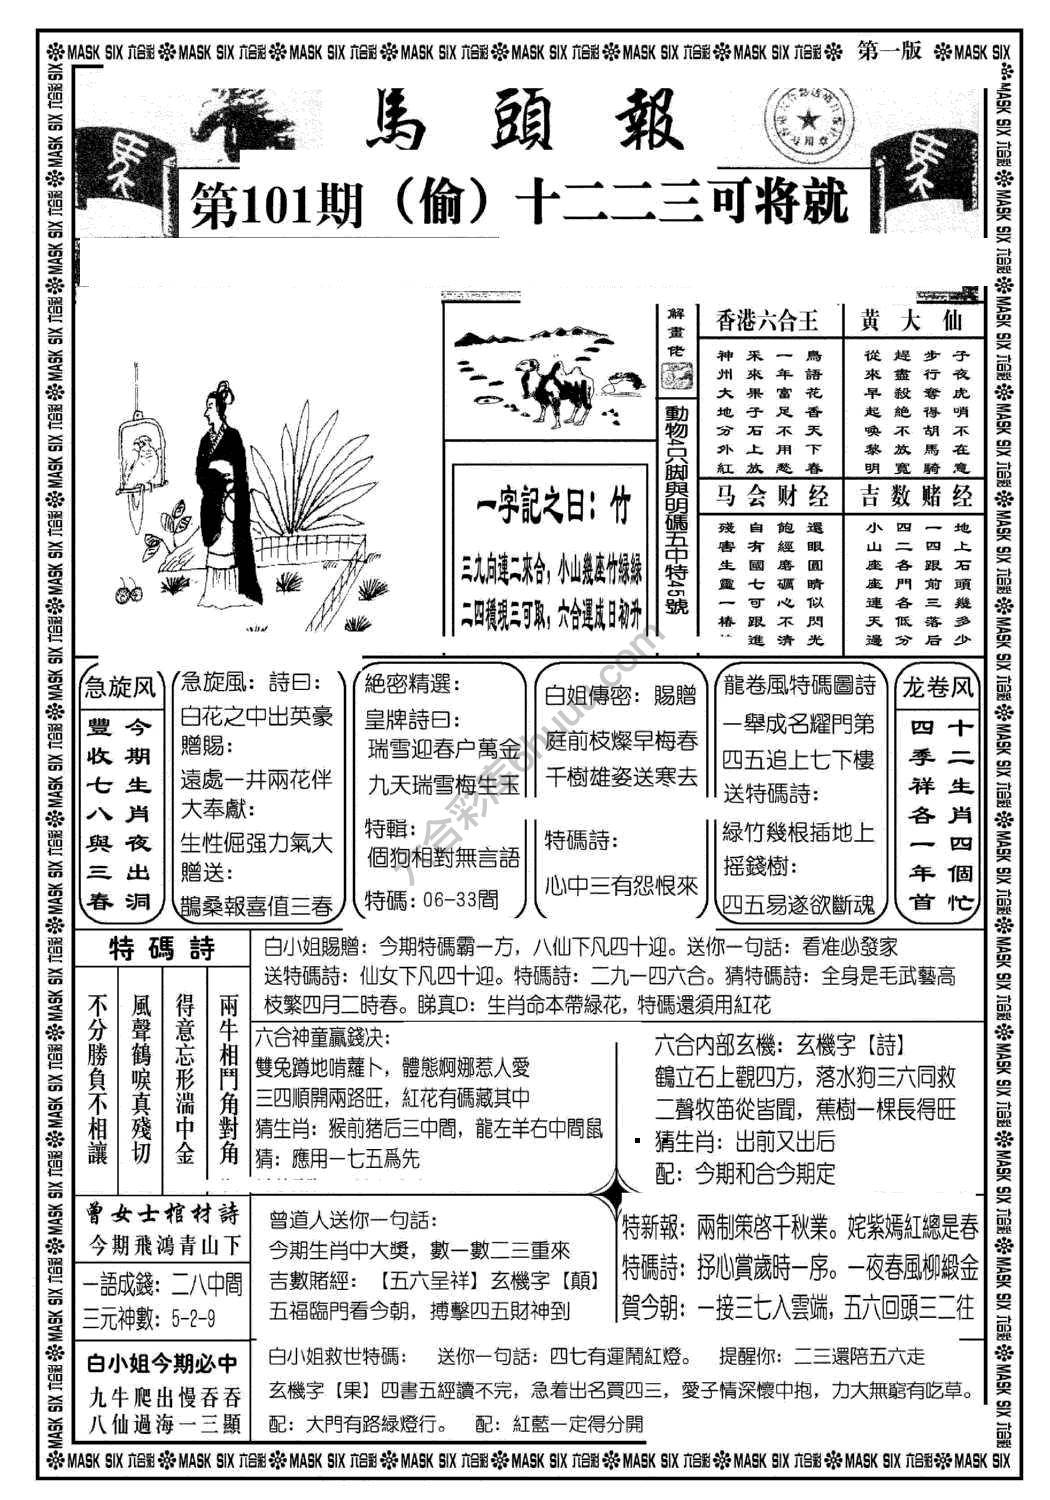 MASK SIX 六合彩 MASK SIX 六合彩 MASK SIX 六合彩 MASK SIX 六合彩 MASK SIX 六合彩 MASK SIX 六合彩 MASK SIX 六合彩 第一版 MASK SIX
馬頭報
第101期（偷）十二二三可将就
解畫佬
動物4只脚與明碼五中特45號
一字記之曰：竹
三九向連二來合，小山幾座竹緑緑
二四穩現三可取，六合運成日初升
香港六合王
鳥語花香天下春
一年富足不用愁
采來果子石上放
神州大地分外紅
黄大仙
子夜虎哨不在意
步行奪得胡馬騎
趕盡殺絶不放寬
從來早起喚黎明
马会财经
還眼圓睛似閃光
飽經磨礪心不清
自有國七可跟進
殘害生靈一椿
吉数赌经
地上石頭幾多少
一四跟前三落后
四二各門各低分
小山座座連天邊
急旋风
今期生肖夜出洞
豐收七八與三春
急旋風：詩曰：
白花之中出英豪
贈賜：
遠處一井兩花伴
大奉獻：
生性倔强力氣大
贈送：
鵲桑報喜值三春
絶密精選：
皇牌詩曰：
瑞雪迎春户萬金
九天瑞雪梅生玉
特輯：
個狗相對無言語
特碼：06-33間
白姐傳密：賜贈
庭前枝燦早梅春
千樹雄姿送寒去
特碼詩：
心中三有怨恨來
龍卷風特碼圖詩
一舉成名耀門第
四五追上七下樓
送特碼詩：
緑竹幾根插地上
摇錢樹：
四五易遂欲斷魂
龙卷风
十二生肖四個忙
四季祥各一年首
特碼詩
兩牛相鬥角對角
得意忘形湍中金
風聲鶴唳真殘切
不分勝負不相讓
白小姐賜贈：今期特碼霸一方，八仙下凡四十迎。送你一句話：看准必發家
送特碼詩：仙女下凡四十迎。特碼詩：二九一四六合。猜特碼詩：全身是毛武藝高
枝繁四月二時春。睇真D：生肖命本帶緑花，特碼還須用紅花
六合神童贏錢决：
雙兔蹲地啃蘿卜，體態婀娜惹人愛
三四順開兩路旺，紅花有碼藏其中
猜生肖：猴前猪后三中間，龍左羊右中間鼠
猜：應用一七五爲先
六合内部玄機：玄機字【詩】
鶴立石上觀四方，落水狗三六同救
二聲牧笛從皆聞，蕉樹一棵長得旺
猜生肖：出前又出后
配：今期和合今期定
曾女士棺材詩
今期飛鴻青山下
一語成錢：二八中間
三元神數：5-2-9
曾道人送你一句話：
今期生肖中大獎，數一數二三重來
吉數賭經：【五六呈祥】玄機字【顛】
五福臨門看今朝，搏擊四五財神到
特新報：兩制策啓千秋業。姹紫嫣紅總是春
特碼詩：抒心賞歲時一序。一夜春風柳緞金
賀今朝：一接三七入雲端，五六回頭三二往
白小姐今期必中
九牛爬出慢吞吞
八仙過海一三顯
白小姐救世特碼： 送你一句話：四七有運鬧紅燈。 提醒你：二三還陪五六走
玄機字【果】四書五經讀不完，急着出名買四三，愛子情深懷中抱，力大無窮有吃草。
配：大門有路緑燈行。 配：紅藍一定得分開
MASK SIX 六合彩 MASK SIX 六合彩 MASK SIX 六合彩 MASK SIX 六合彩 MASK SIX 六合彩 MASK SIX 六合彩 MASK SIX 六合彩 MASK SIX 六合彩 MASK SIX